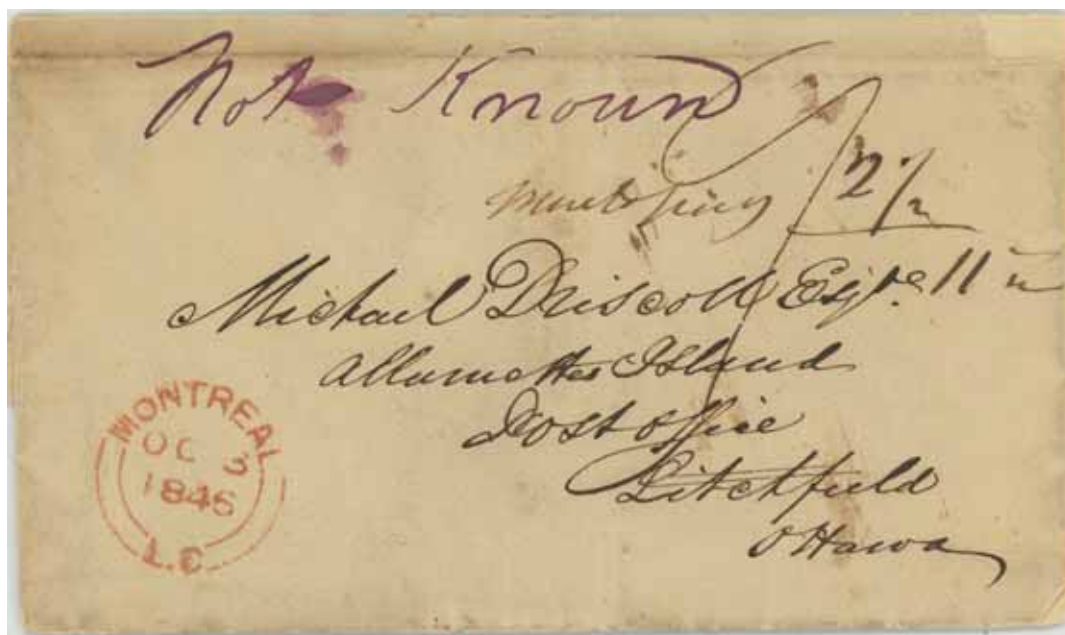 Not Known
2/
Michael Driscoll Esqre 11
Allumettes Island
Post office
Litchfield
Ottawa
MONTREAL
OC 3
1846
L.C.